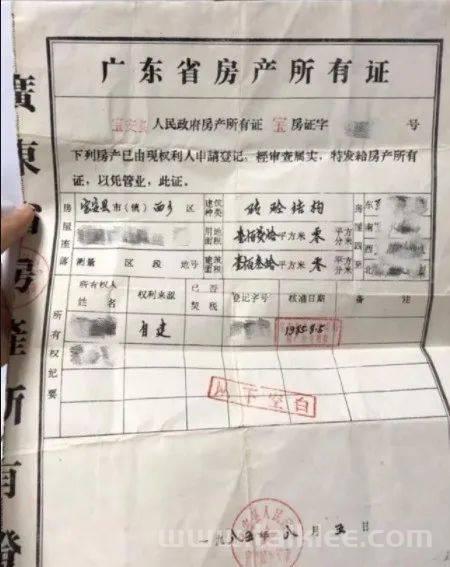 广东省房产所有证
宝安县人民政府房产所有证 宝 房证字 号
下列房产已由现权利人申請登记，經审查属实，特发給房产所有
証，以凭管业，此证。
房屋座落 宝安县市(镇)西乡 区 建筑种类 砖砼结构 房屋四至 东
用地面积 平方米 零 平方分米 南 西
测量 区 段 地号 建筑面积 壹佰叁拾平方米 零 平方分米 北
所有权纪要 所有权人姓名 权利来源 已否契税 登记字号 核准日期 备注
自建 1985.8.5
以下空白
一九八五年八月五日
廣東省房產所有證